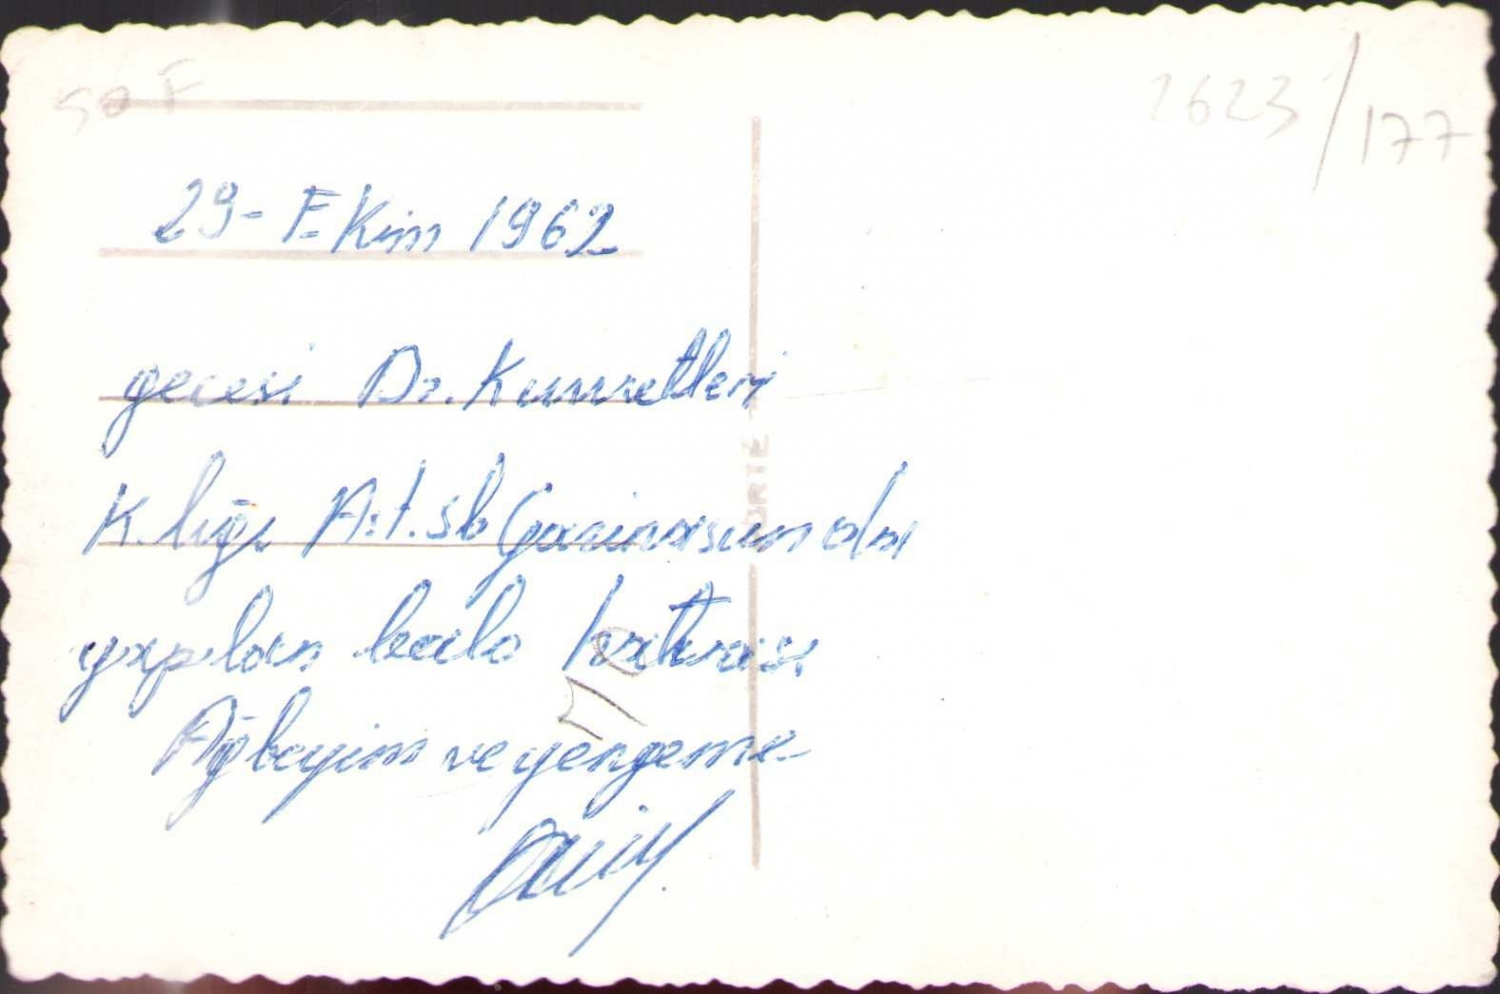 50 F
2623/177
29-Ekim 1962
gecesi Dz. Kuvvetleri
K.lığı Ast.sb Gazinosunda
yapılan balo hatırası
Ağbeyim ve yengeme
ORTE